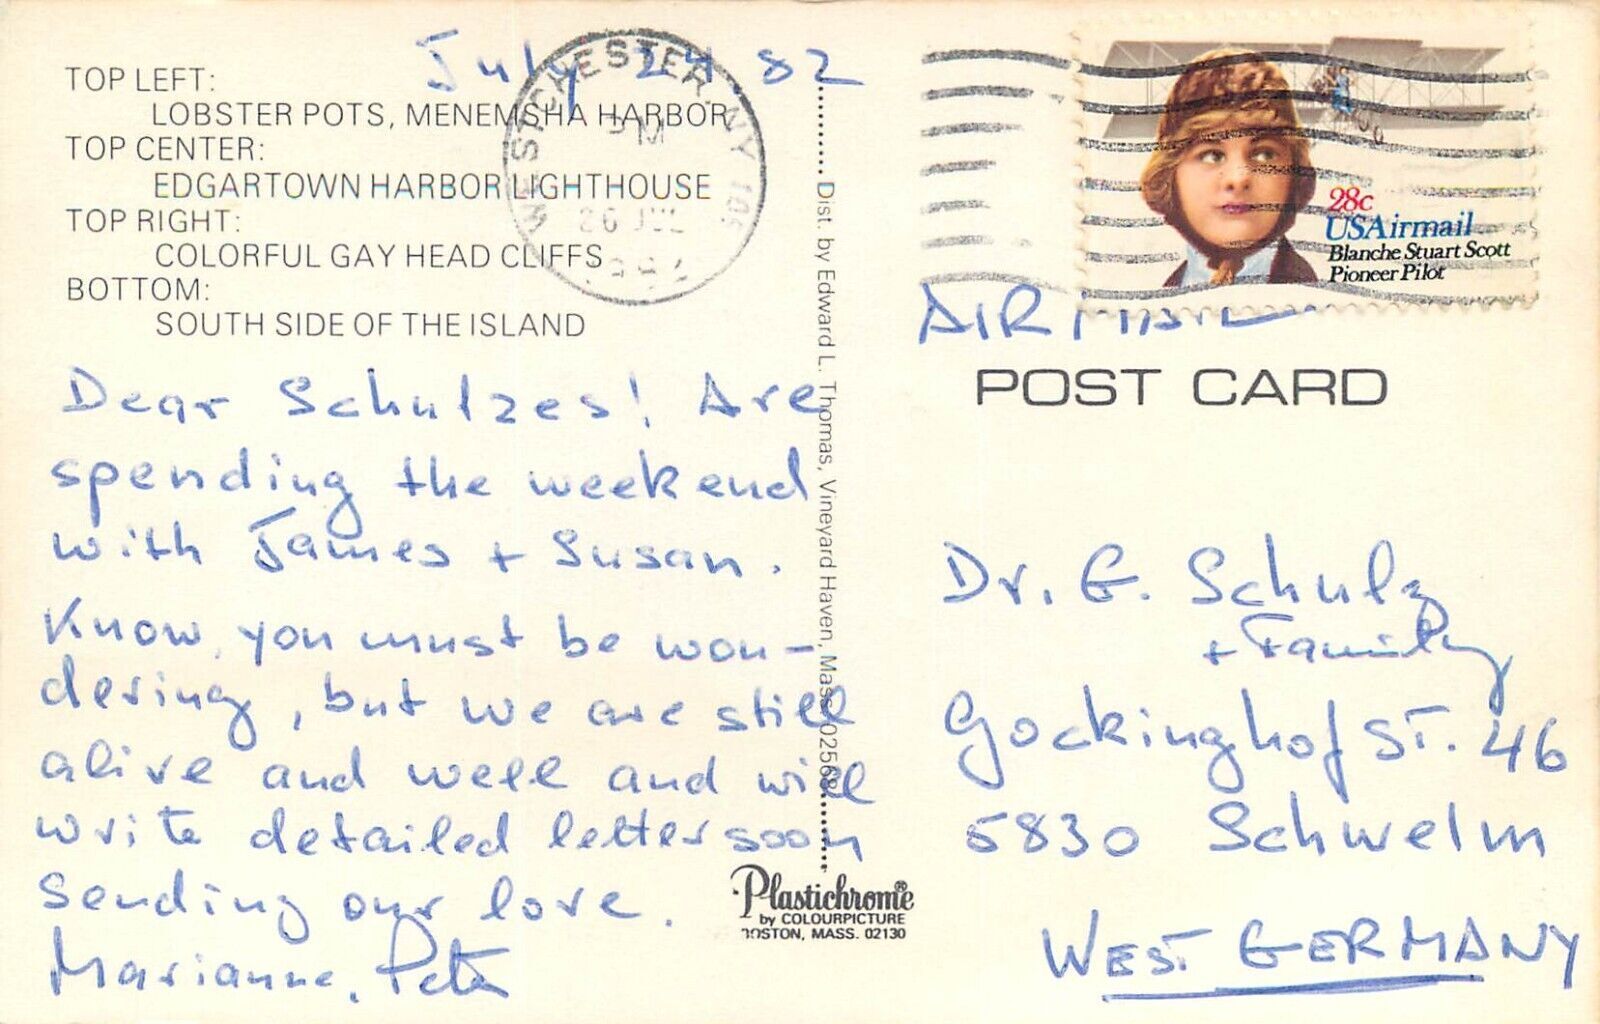 July 24, 82
TOP LEFT:
LOBSTER POTS, MENEMSHA HARBOR
TOP CENTER:
EDGARTOWN HARBOR LIGHTHOUSE
TOP RIGHT:
COLORFUL GAY HEAD CLIFFS
BOTTOM:
SOUTH SIDE OF THE ISLAND
WESTCHESTER, NY
PM
26 JUL
Dear Schulzes! Are
spending the weekend
with James + Susan.
Know, you must be won-
dering, but we are still
alive and well and will
write detailed letter soon
sending our love.
Marianne, Peter
Dist. by Edward L. Thomas, Vineyard Haven, Mass. 02568
Plastichrome®
by COLOURPICTURE
BOSTON, MASS. 02130
28c
USAirmail
Blanche Stuart Scott
Pioneer Pilot
AIR MAIL
POST CARD
Dr. G. Schulz
+ Family
Gockinghof ST. 46
5830 Schwelm
WEST GERMANY